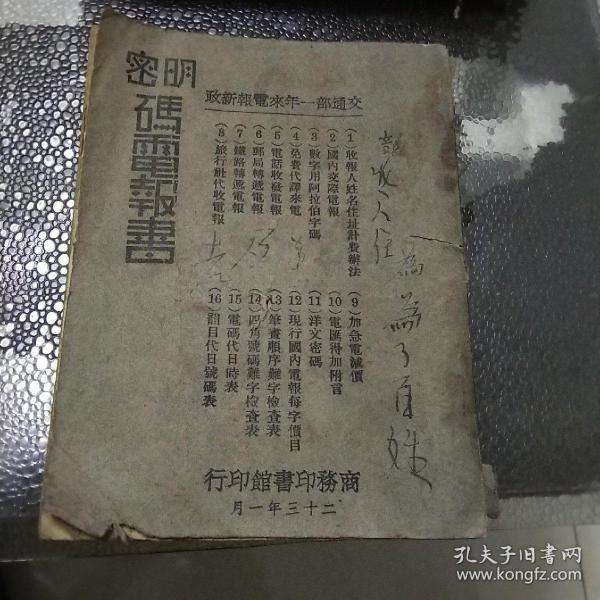 明密碼電報書
交通部一年來電報新政
(1) 收報人姓名住址計費辦法
(2) 國內交際電報
(3) 數字用阿拉伯字碼
(4) 免費代譯來電
(5) 電話收發電報
(6) 郵局轉遞電報
(7) 鐵路轉遞電報
(8) 旅行社代收電報
(9) 加急電減價
(10) 電匯得加附言
(11) 洋文密碼
(12) 現行國內電報每字價目
(13) 筆畫順序難字檢查表
(14) 四角號碼難字檢查表
(15) 電碼代日時表
(16) 韻目代日號碼表
商務印書館印行
二十三年一月
孔夫子旧書网
www.kongfz.com